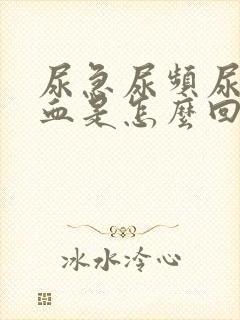 尿急尿頻尿
血是怎麼回
冰水冷心